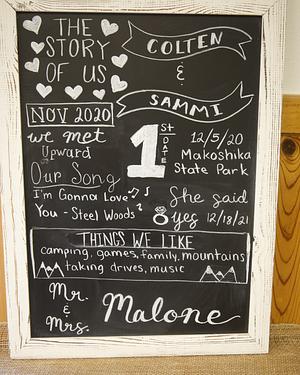 THE
STORY
OF US
COLTEN
&
SAMMI
NOV 2020
we met
Upward
1ST DATE
12/5/20
Makoshika
State Park
Our Song
I'm Gonna Love
You - Steel Woods
She said
yes 12/18/21
THINGS WE LIKE
camping, games, family, mountains
taking drives, music
Mr.
&
Mrs.
Malone